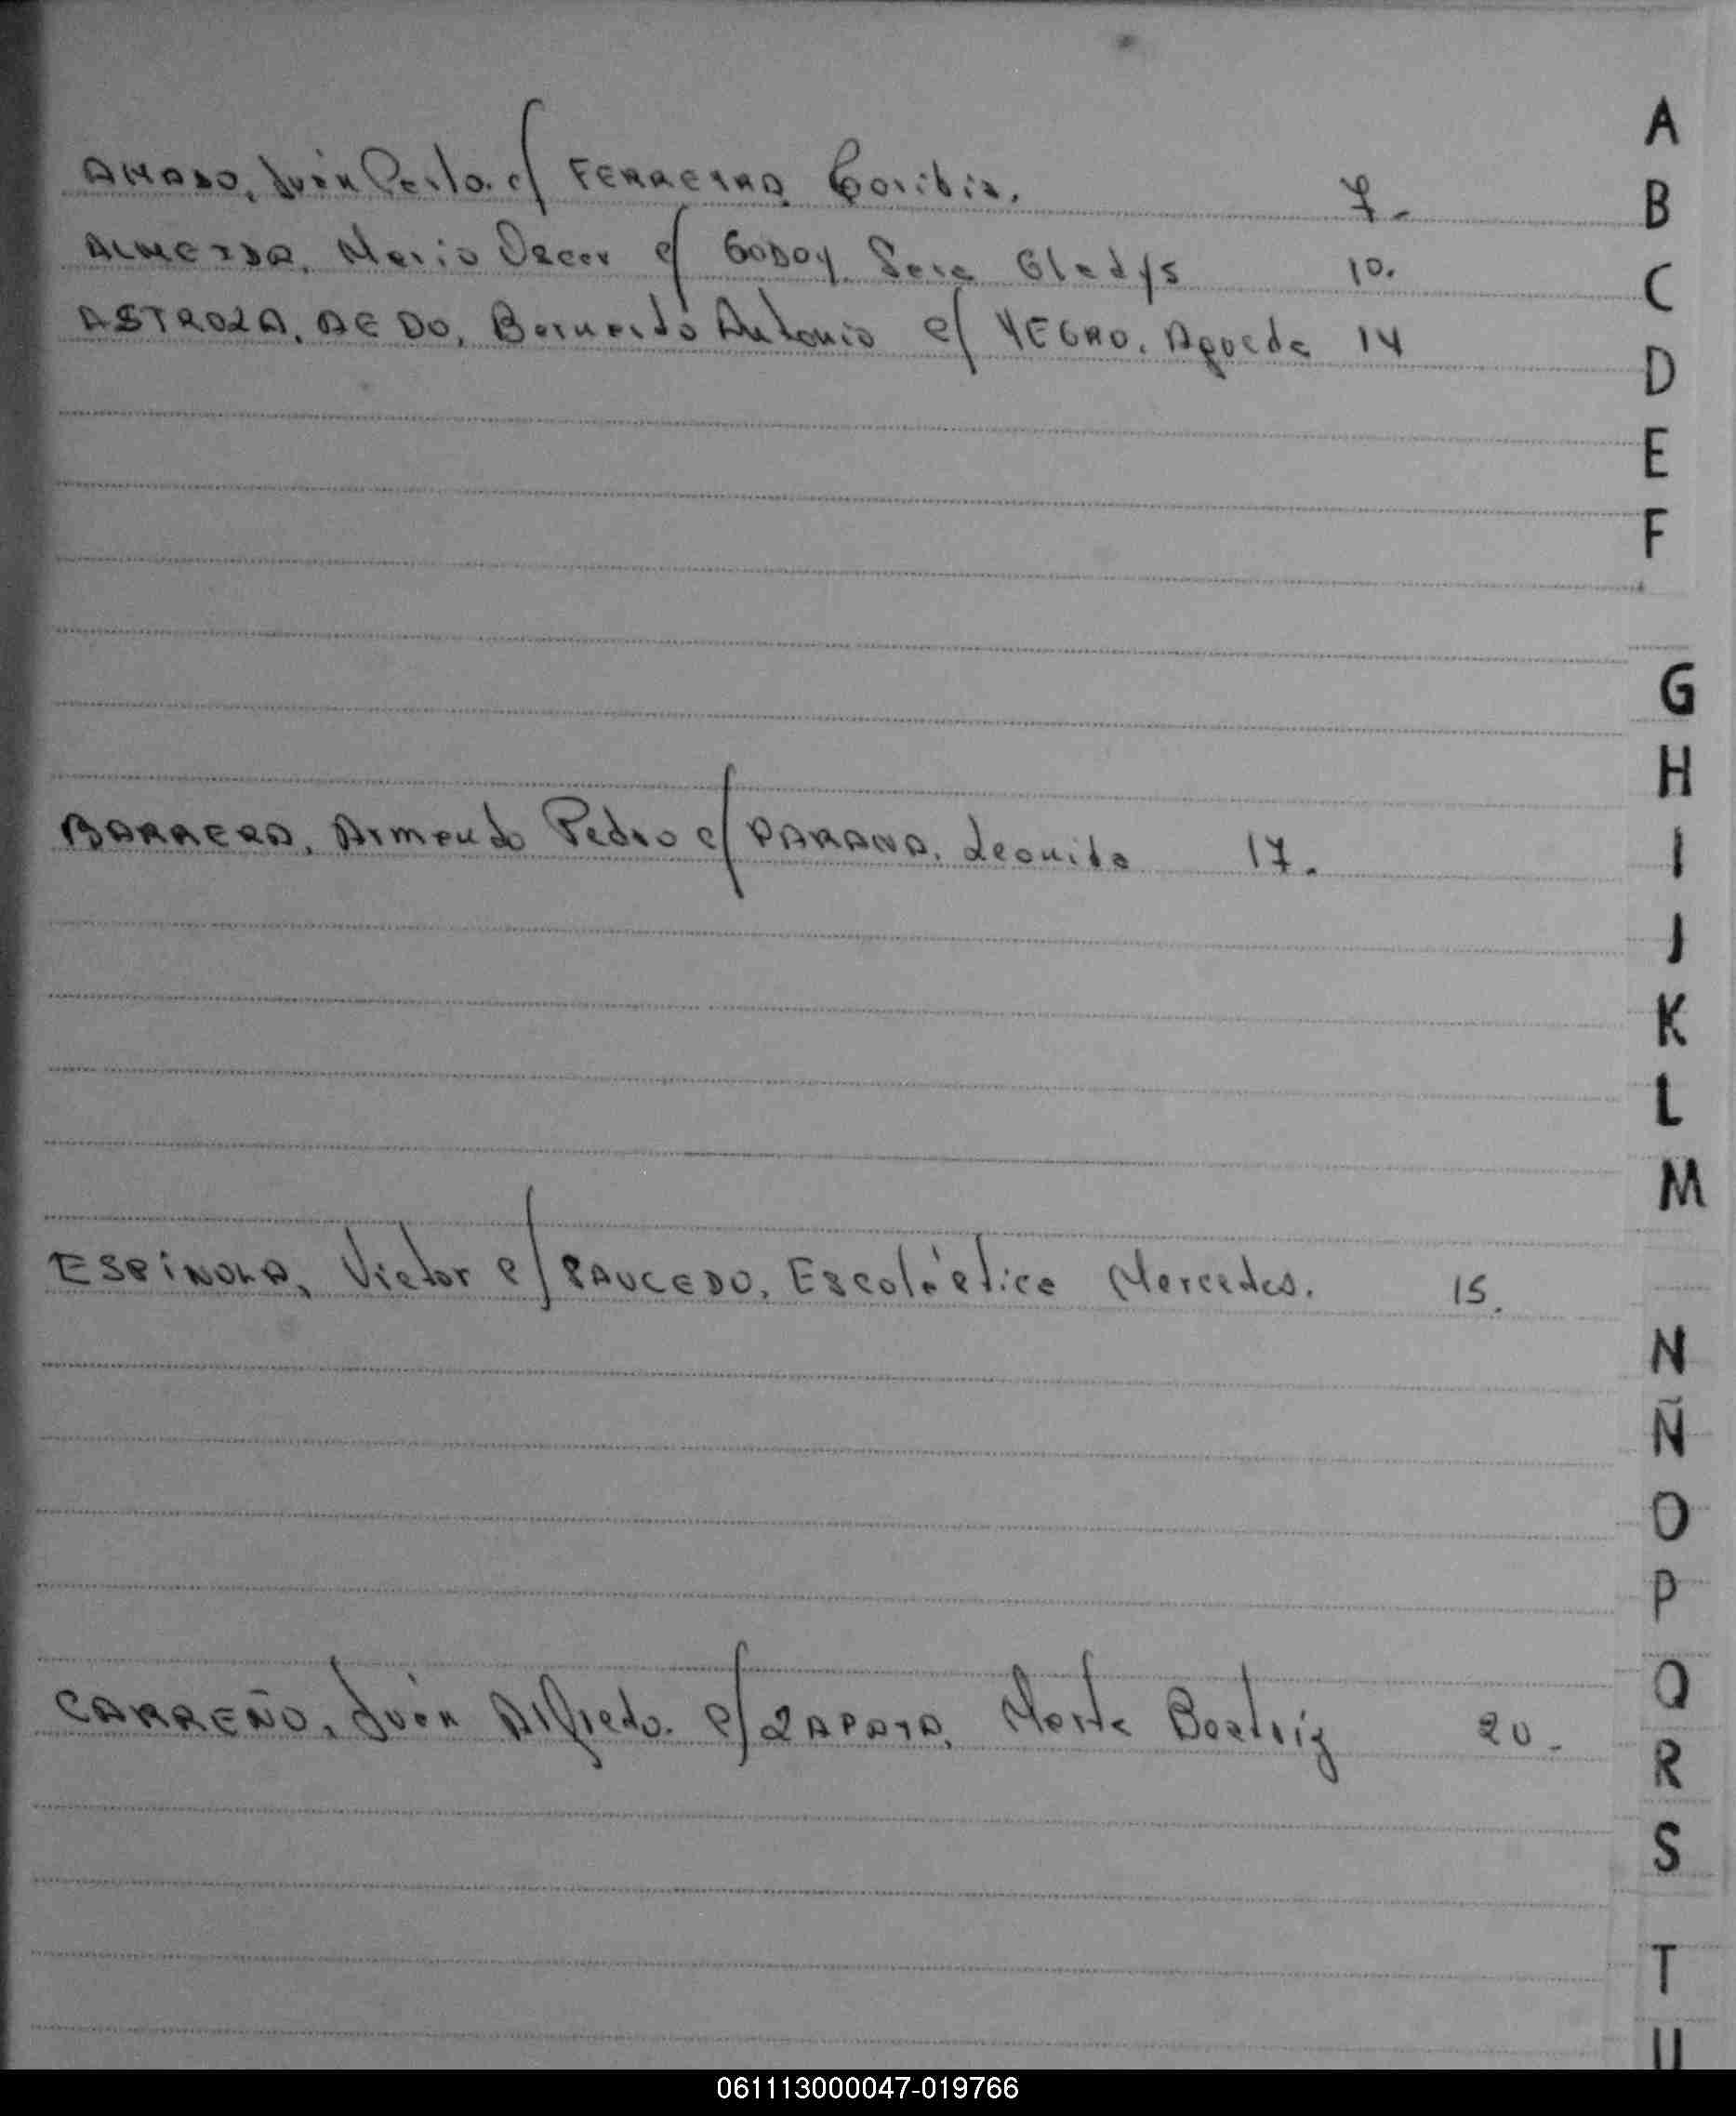 AMADO, Juan Carlo. c/ FERREYRA, Toribia. 7.-
ALMEIDA, Mario Oscar c/ GODOY Sara Gladys 10.
ASTROZA, AEDO, Bernardo Antonio c/ YEGRO, Agueda 14
BARRERA, Armando Pedro c/ PARANA, Leonida 17.
ESPÍNOLA, Victor c/ SAUCEDO, Escolástica Mercedes. 15.
CARREÑO, Juan Alfredo. c/ ZAPATA, Marta Beatriz 20.-
A
B
C
D
E
F
G
H
I
J
K
L
M
N
Ñ
O
P
Q
R
S
T
U
061113000047-019766